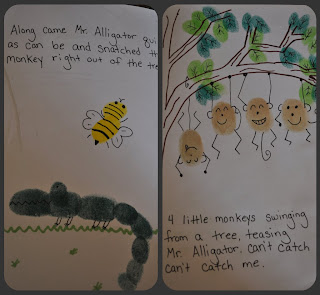 Along came Mr. Alligator
as can be and snatched
monkey right out of the
4 little monkeys swinging
from a tree, teasing
Mr. Alligator. can't catch
can't catch me.